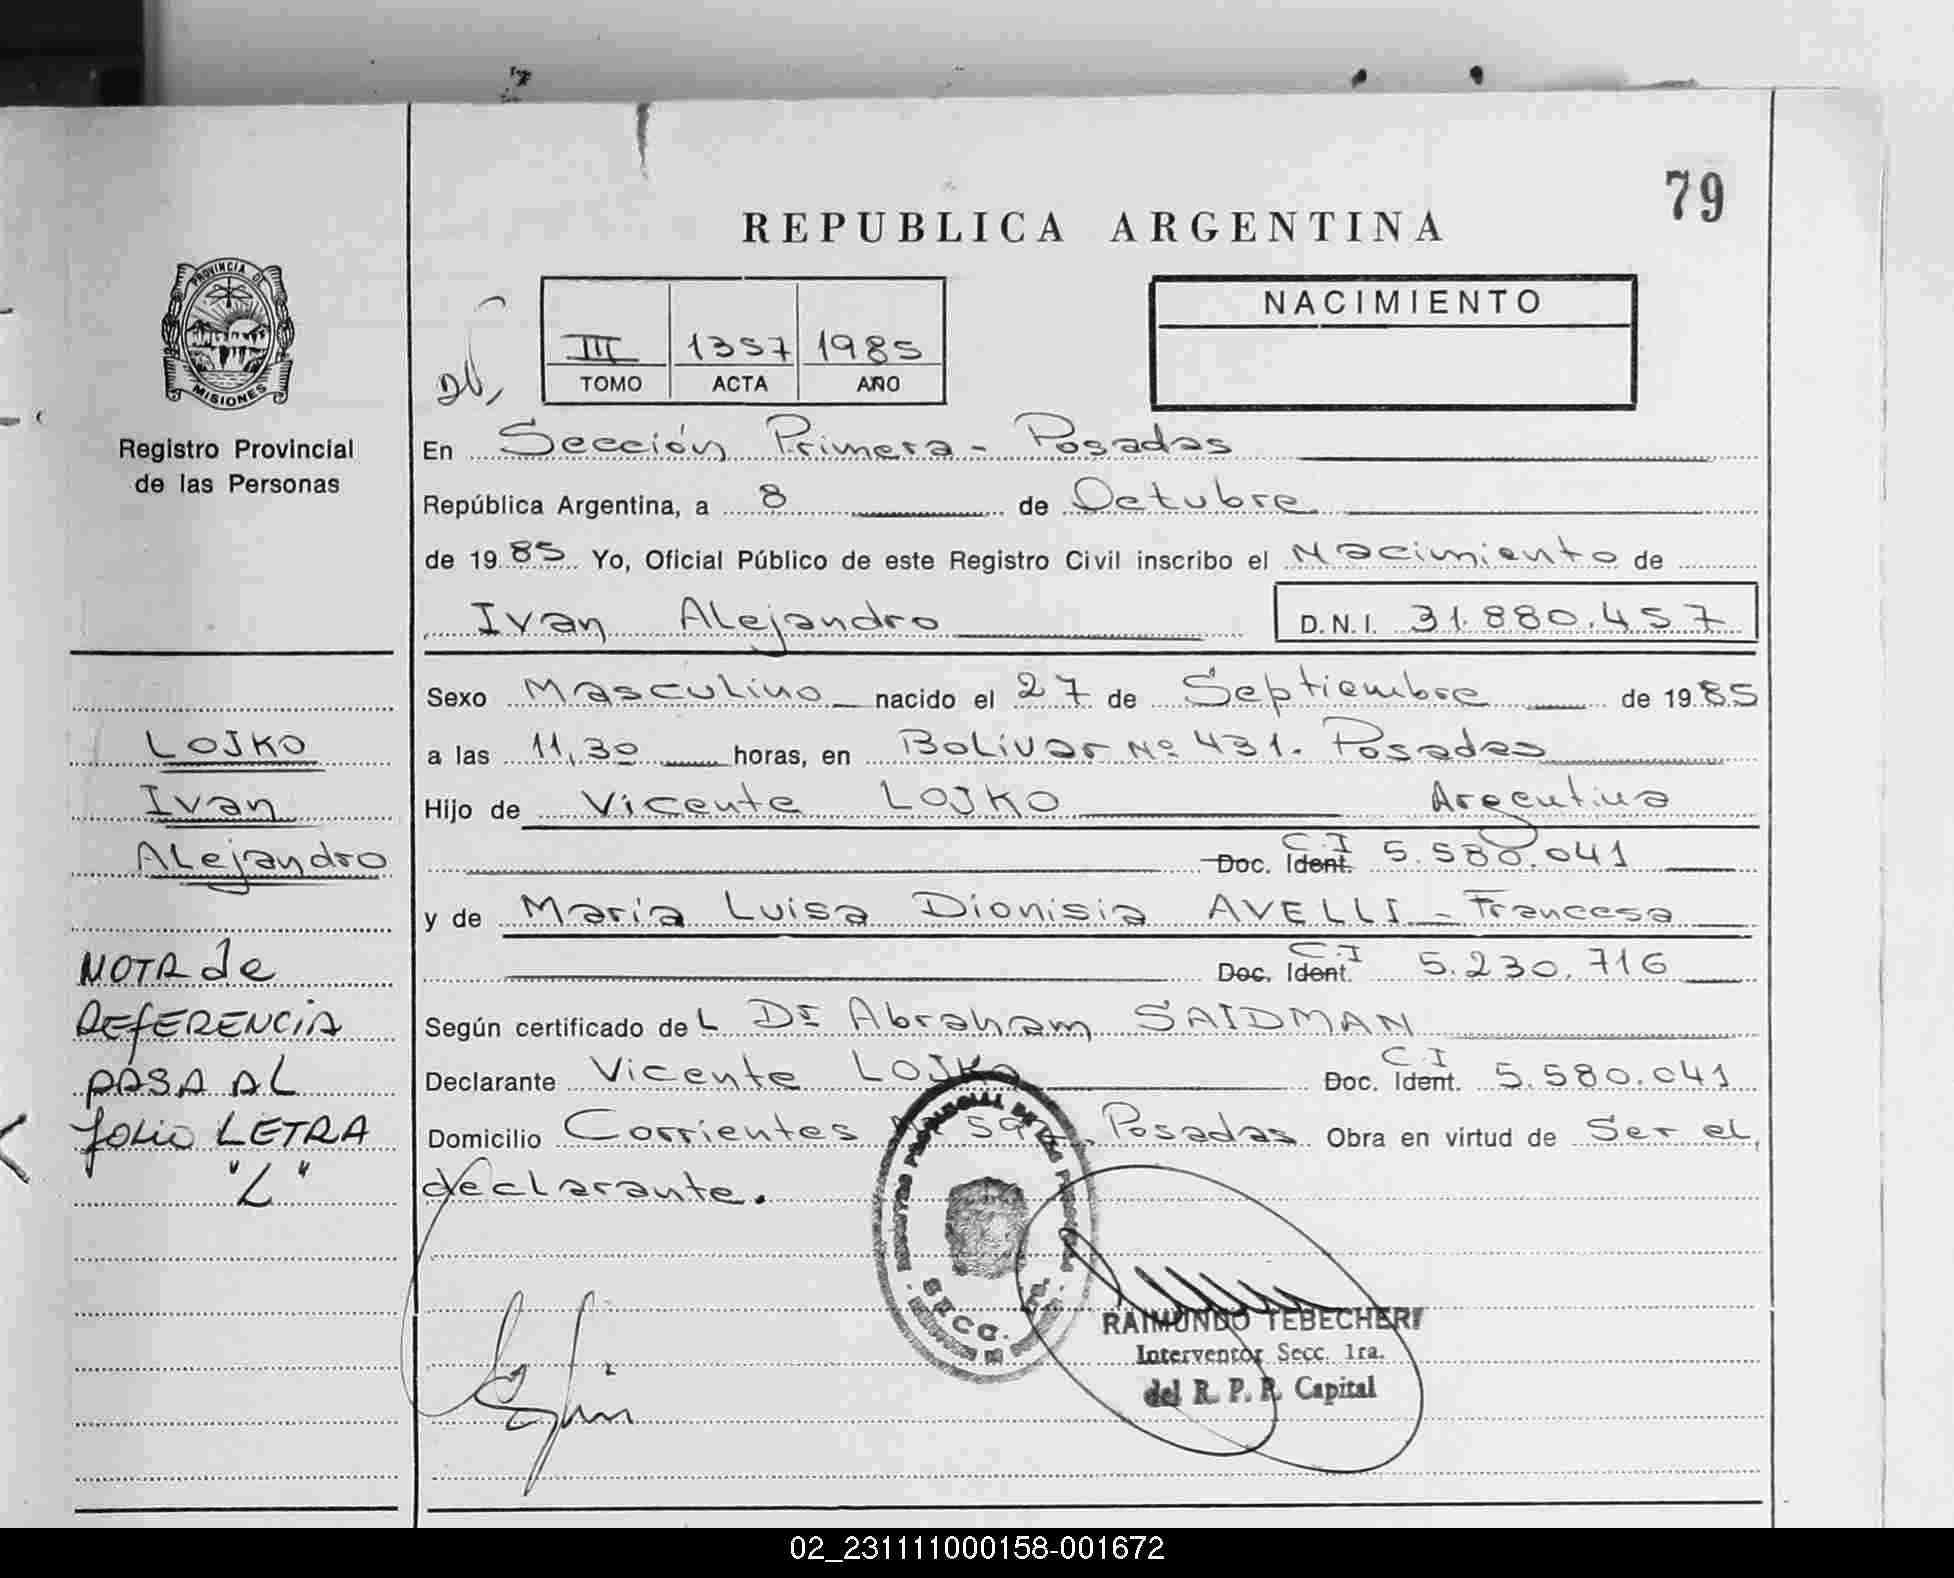 79
REPUBLICA ARGENTINA
PROVINCIA DE
MISIONES
Registro Provincial
de las Personas
III 1357 1985
TOMO ACTA AÑO
NACIMIENTO
En Sección Primera - Posadas
República Argentina, a 8 de Octubre
de 1985 Yo, Oficial Público de este Registro Civil inscribo el Nacimiento de
Ivan Alejandro D.N.I. 31.880.457
Sexo Masculino nacido el 27 de Septiembre de 1985
a las 11,30 horas, en Bolívar Nº 431. Posadas
Hijo de Vicente LOJKO Argentina
Doc. Ident. C.I 5.580.041
y de María Luisa Dionisia AVELLI - Francesa
Doc. Ident. C.I 5.230.716
Según certificado del Dr Abraham SAIDMAN
Declarante Vicente LOJKO Doc. Ident. C.I 5.580.041
Domicilio Corrientes Posadas Obra en virtud de Ser el
declarante.
LOJKO
Ivan
Alejandro
NOTA de
REFERENCIA
PASA AL
folio LETRA
"L"
SECC.
RAIMUNDO TEBECHERI
Interventor Secc. 1ra.
del R. P. P. Capital
02_231111000158-001672